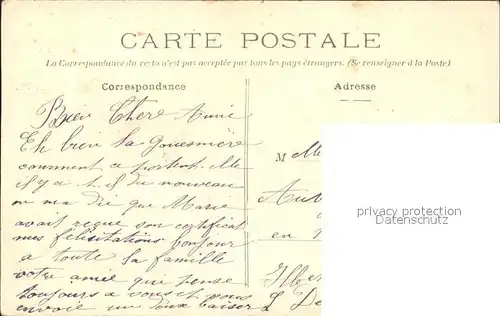 CARTE POSTALE
La Correspondance du recto n'est pas acceptée par tous les pays étrangers. (Se renseigner à la Poste)
Correspondance
Adresse
Bien Cher Amie
Eh bien la
comment a portent elle
il y a t il du nouveau
on ma die que Marie
avait reçue son certificat
mes félisitations bonjour
a toute la famille
votre amie qui pense
toujours a vous et vous
envoie un doux baiser
M
en
privacy protection
Datenschutz